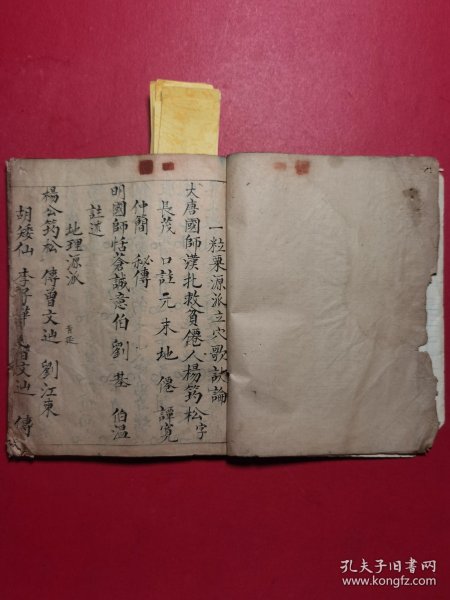 一粒粟源派立穴歌訣論
大唐國師漢扎救貧僊人楊筠松字
長茂 口註元末地僊譚寬
仲簡 秘傳
明國師恬蒼誠意伯劉基伯溫
註送
地理源派
楊公筠松 傳曾文辿 劉江東
胡矮仙 李 曾文辿 傳
孔夫子旧书网
www.kongfz.com